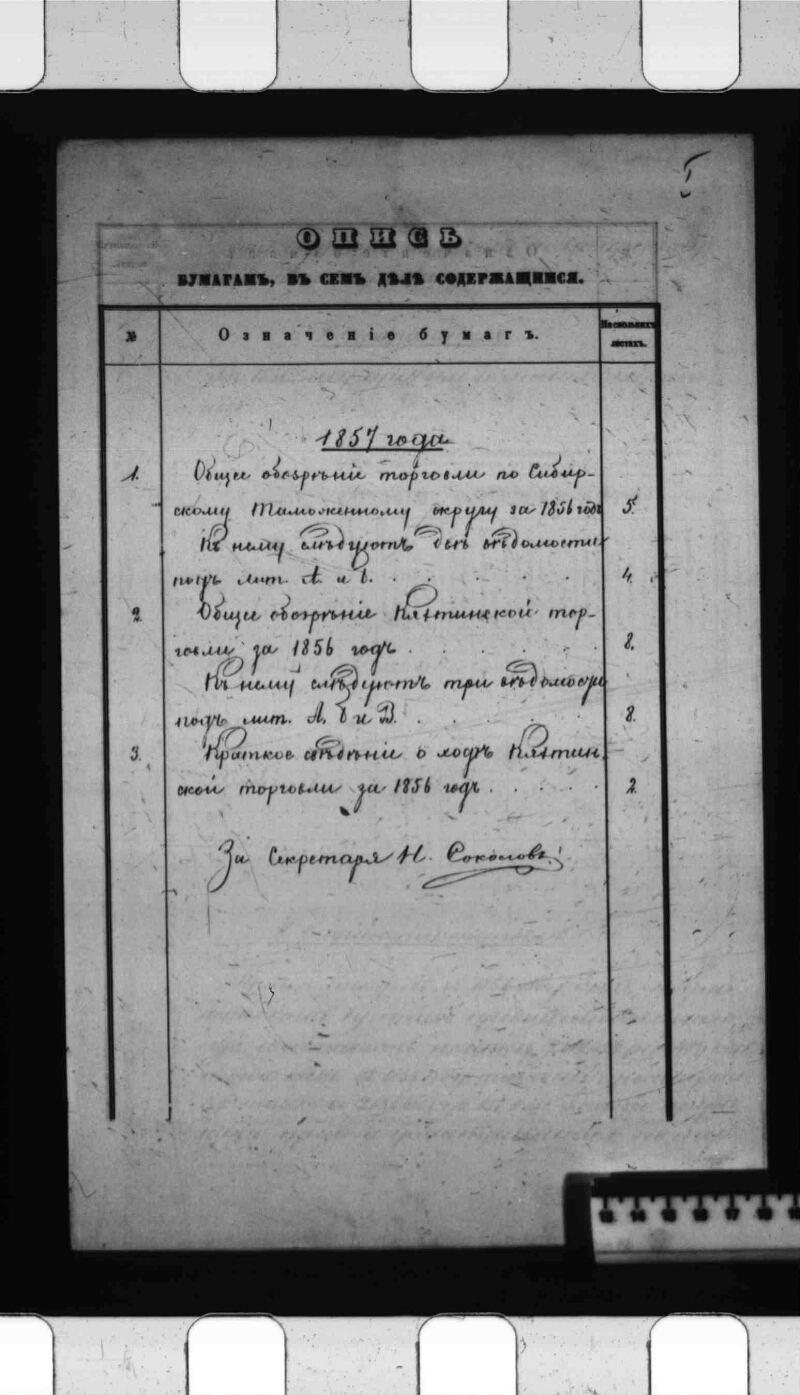 ОПИСЬ
БУМАГАМЪ, ВЪ СЕМЪ ДѢЛѢ СОДЕРЖАЩИМСЯ.
№ Означеніе бумагъ. На сколькихъ листахъ.
1857 года
1. Общее обозрѣніе торговли по Сибир-
скому Таможенному округу за 1856 годъ 5.
Къ нему слѣдуютъ двѣ вѣдомости
подъ лит. А и Б. . . . . . 4.
2. Общее обозрѣніе Кяхтинской тор-
говли за 1856 годъ . . . . . . 8.
Къ нему слѣдуютъ три вѣдомости
подъ лит. А, Б и В. . . . . . 8.
3. Краткое свѣдѣніе о ходѣ Кяхтин-
ской торговли за 1856 годъ . . . . . 2.
За Секретаря Н. Соколовъ.
13 14 15 16 17 18 19